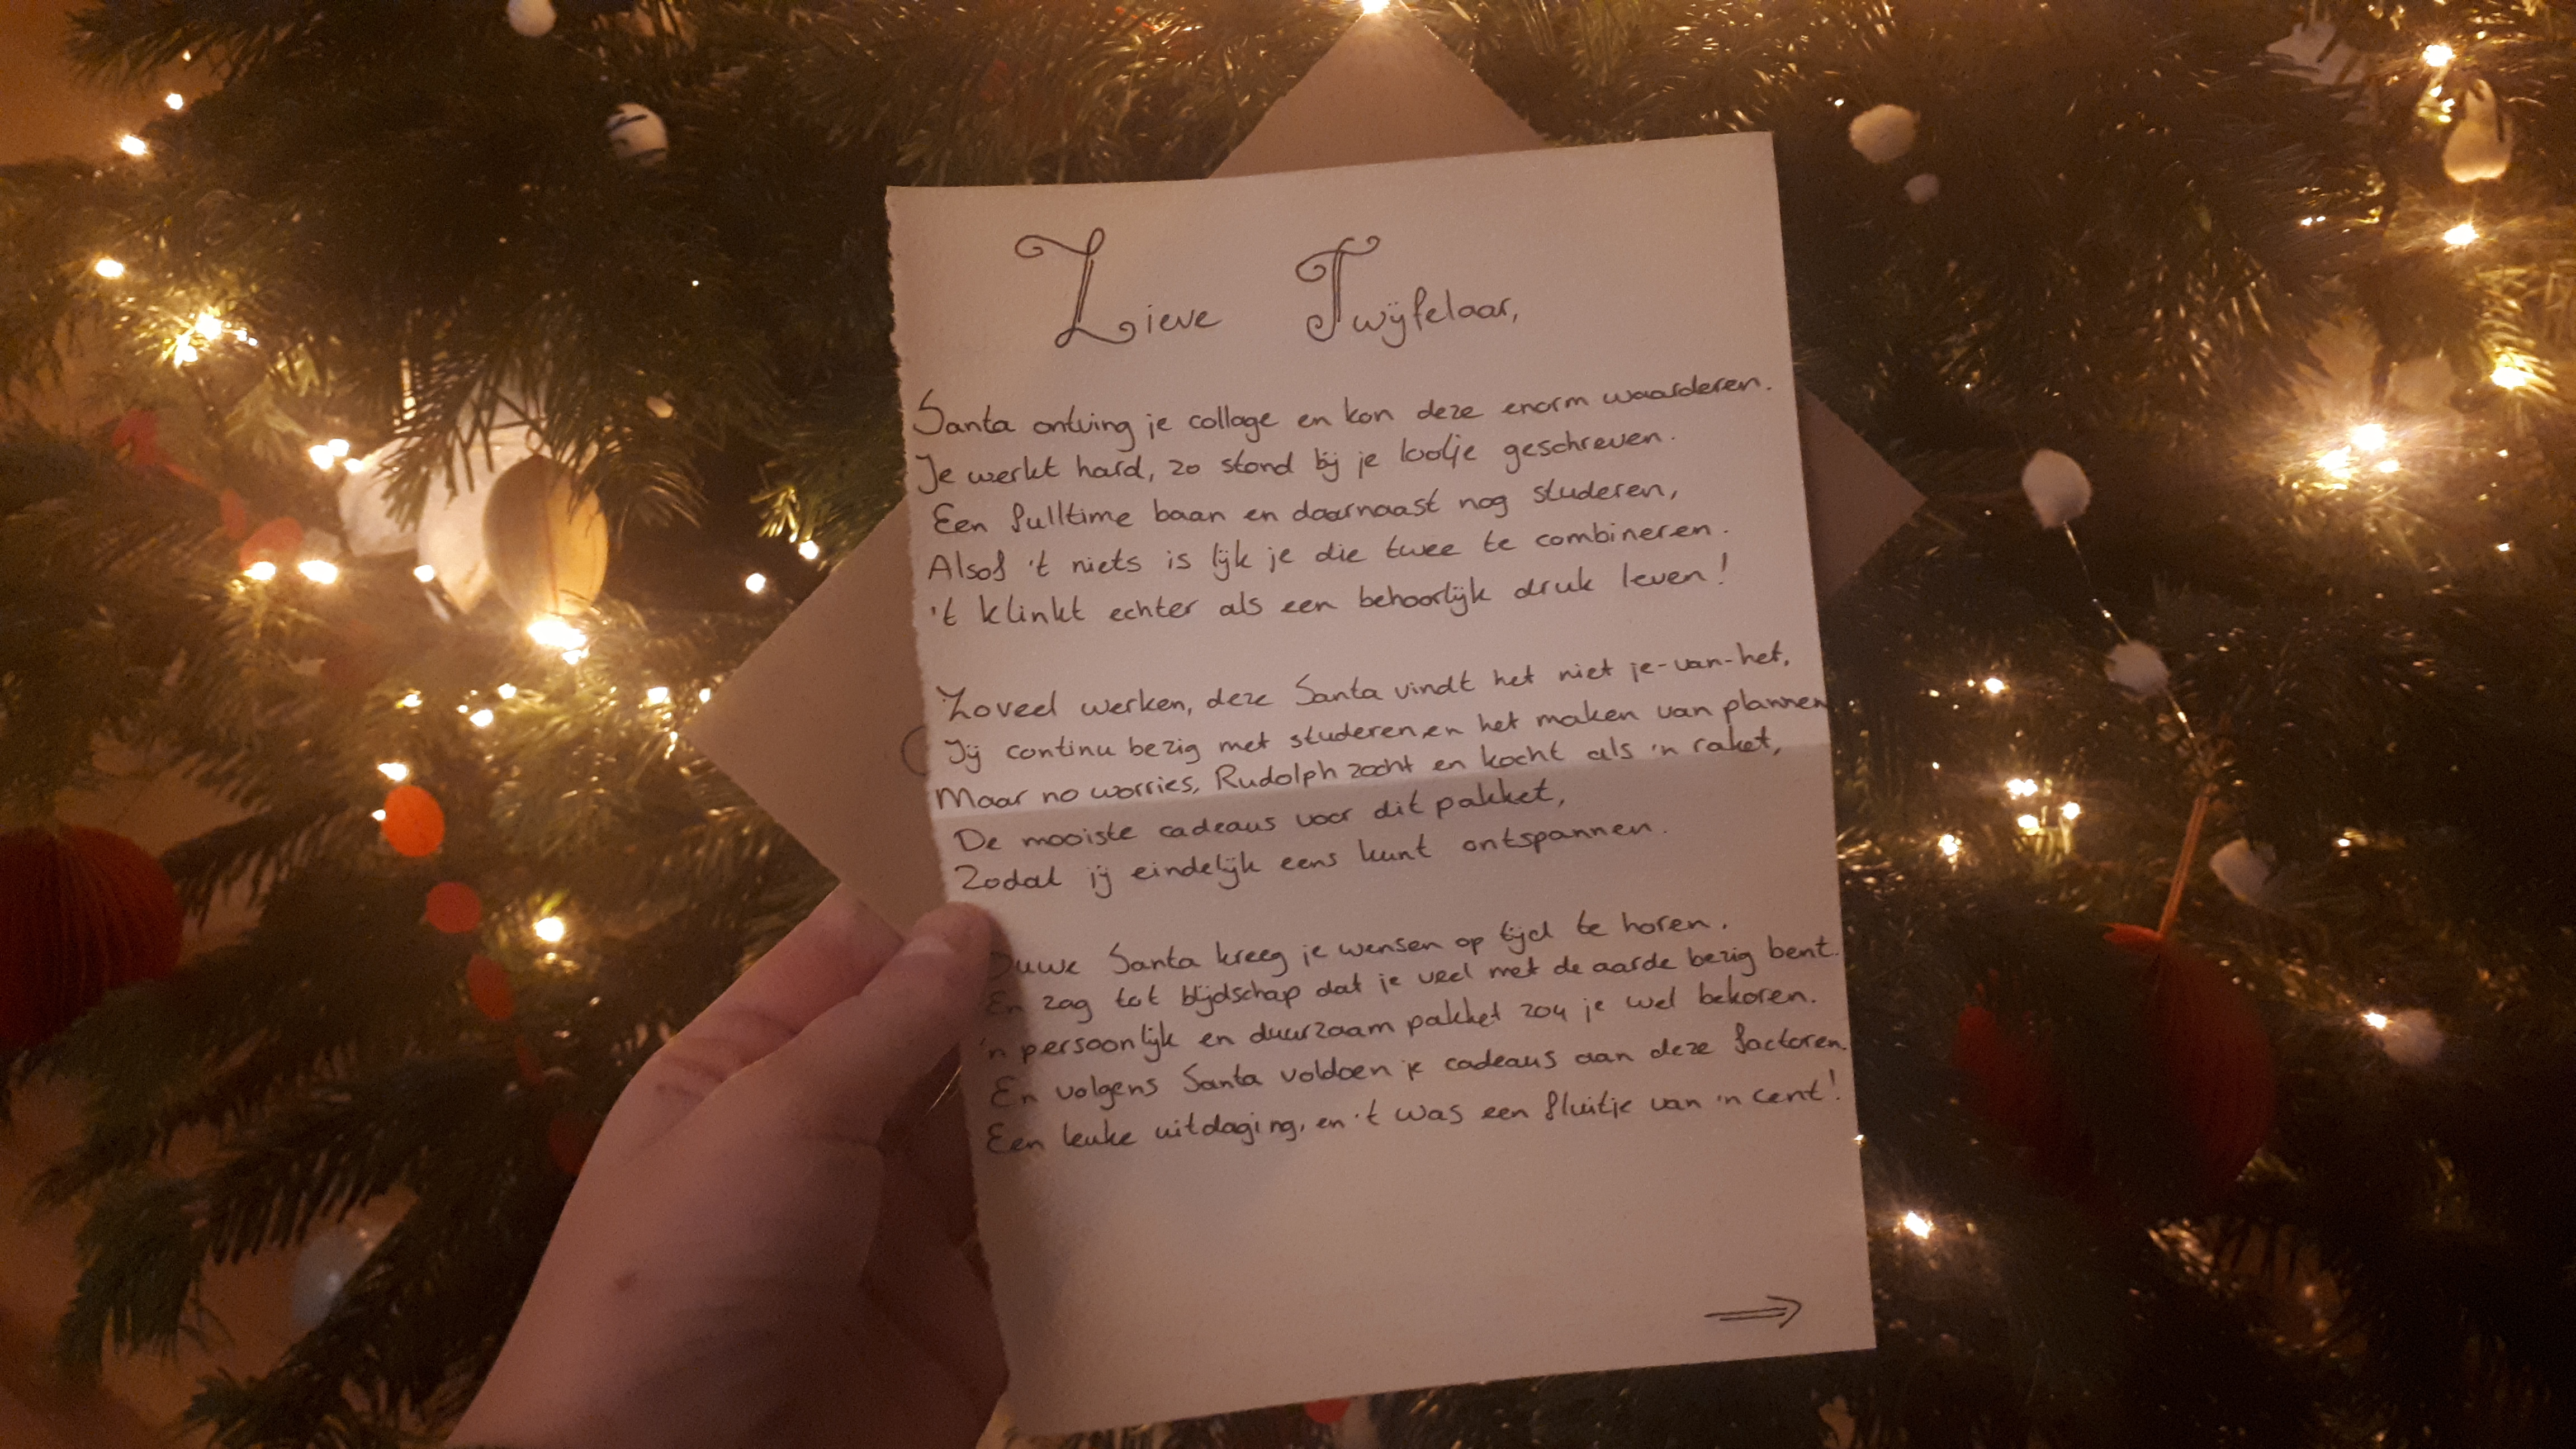 Lieve Twijfelaar,
Santa ontving je collage en kon deze enorm waarderen.
Je werkt hard, zo stond bij je lootje geschreven.
Een fulltime baan en daarnaast nog studeren,
Alsof 't niets is lijk je die twee te combineren.
't klinkt echter als een behoorlijk druk leven!
Zoveel werken, deze Santa vindt het niet je-van-het,
Jij continu bezig met studeren, en het maken van plannen
Maar no worries, Rudolph zocht en kocht als 'n raket,
De mooiste cadeaus voor dit pakket,
Zodat jij eindelijk eens kunt ontspannen.
Santa kreeg je wensen op tijd te horen.
En zag tot blijdschap dat je veel met de aarde bezig bent.
'n persoonlijk en duurzaam pakket zou je wel bekoren.
En volgens Santa voldoen je cadeaus aan deze factoren.
Een leuke uitdaging, en 't was een fluitje van 'n cent!